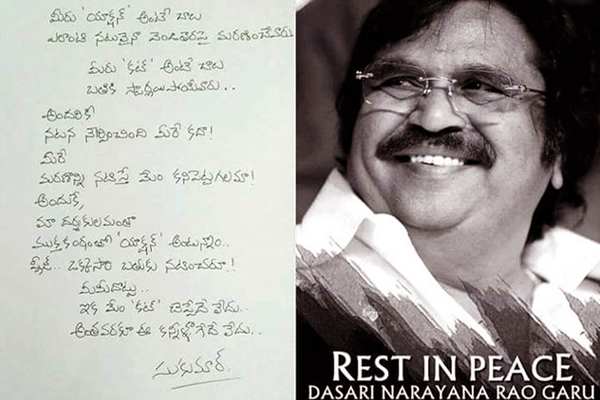 మీరు 'యాక్షన్' అంటే చాలు
ఎలాంటి నటుడైనా వెండితెరపై మరణించేవారు
మీరు 'కట్' అంటే చాలు
బతికి స్టార్లయిపోయేవారు..
అందరికీ
నటన నేర్పించింది మీరే కదా!
మీరే
మరణాన్ని నటిస్తే మేం కనిపెట్టగలమా!
అందుకే,
మా దర్శకులమంతా
ముక్తకంఠంతో 'యాక్షన్' అంటున్నాం..
ప్లీజ్.. ఒక్కసారి బతుకు నటించరూ!
మీమీదొట్టు..
ఇక మేం 'కట్' చెప్పేదే లేదు..
అంతవరకూ ఈ కన్నీళ్లాగేదే లేదు..
సుకుమార్.
REST IN PEACE
DASARI NARAYANA RAO GARU